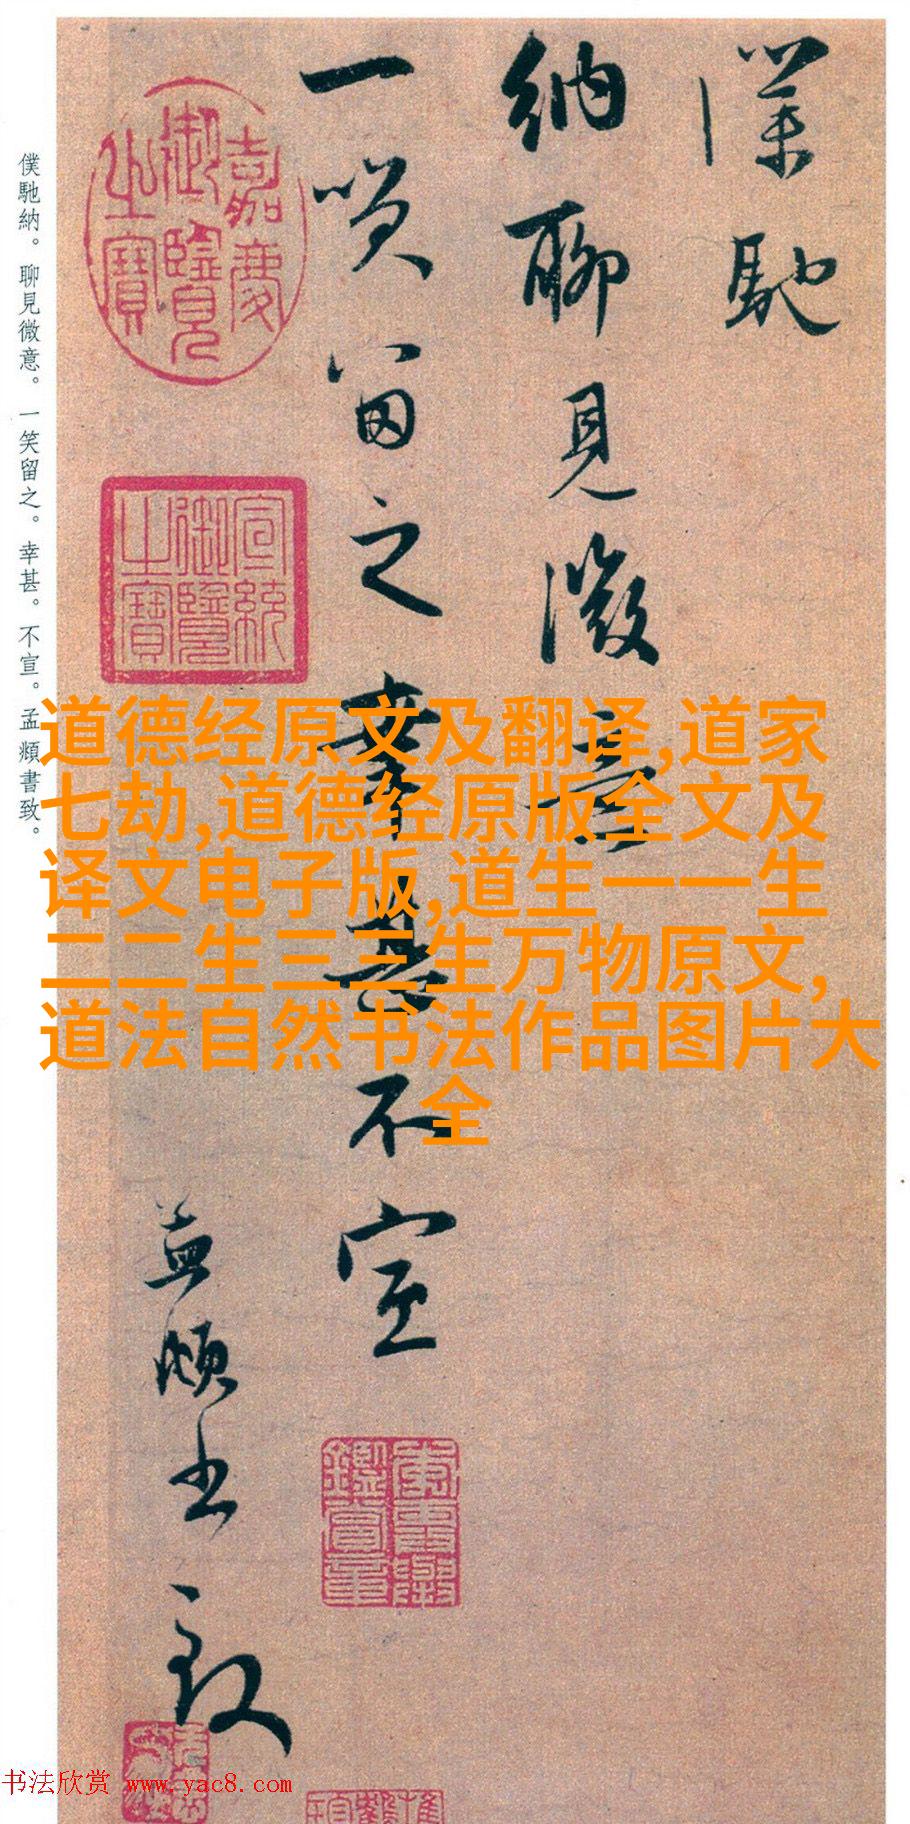 僕馳
納聊見微意
一笑留之幸甚不宣
孟頫書致
嘉慶
御覽
之寶
宣統
御覽
之寶
僕馳納。聊見微意。一笑留之。幸甚。不宣。孟頫書致。
道德经原文及翻译,道家
七劫,道德经原版全文及
译文电子版,道生一一生
二二生三三生万物原文,
道法自然书法作品图片大
全
书法欣赏 www.yac8.com